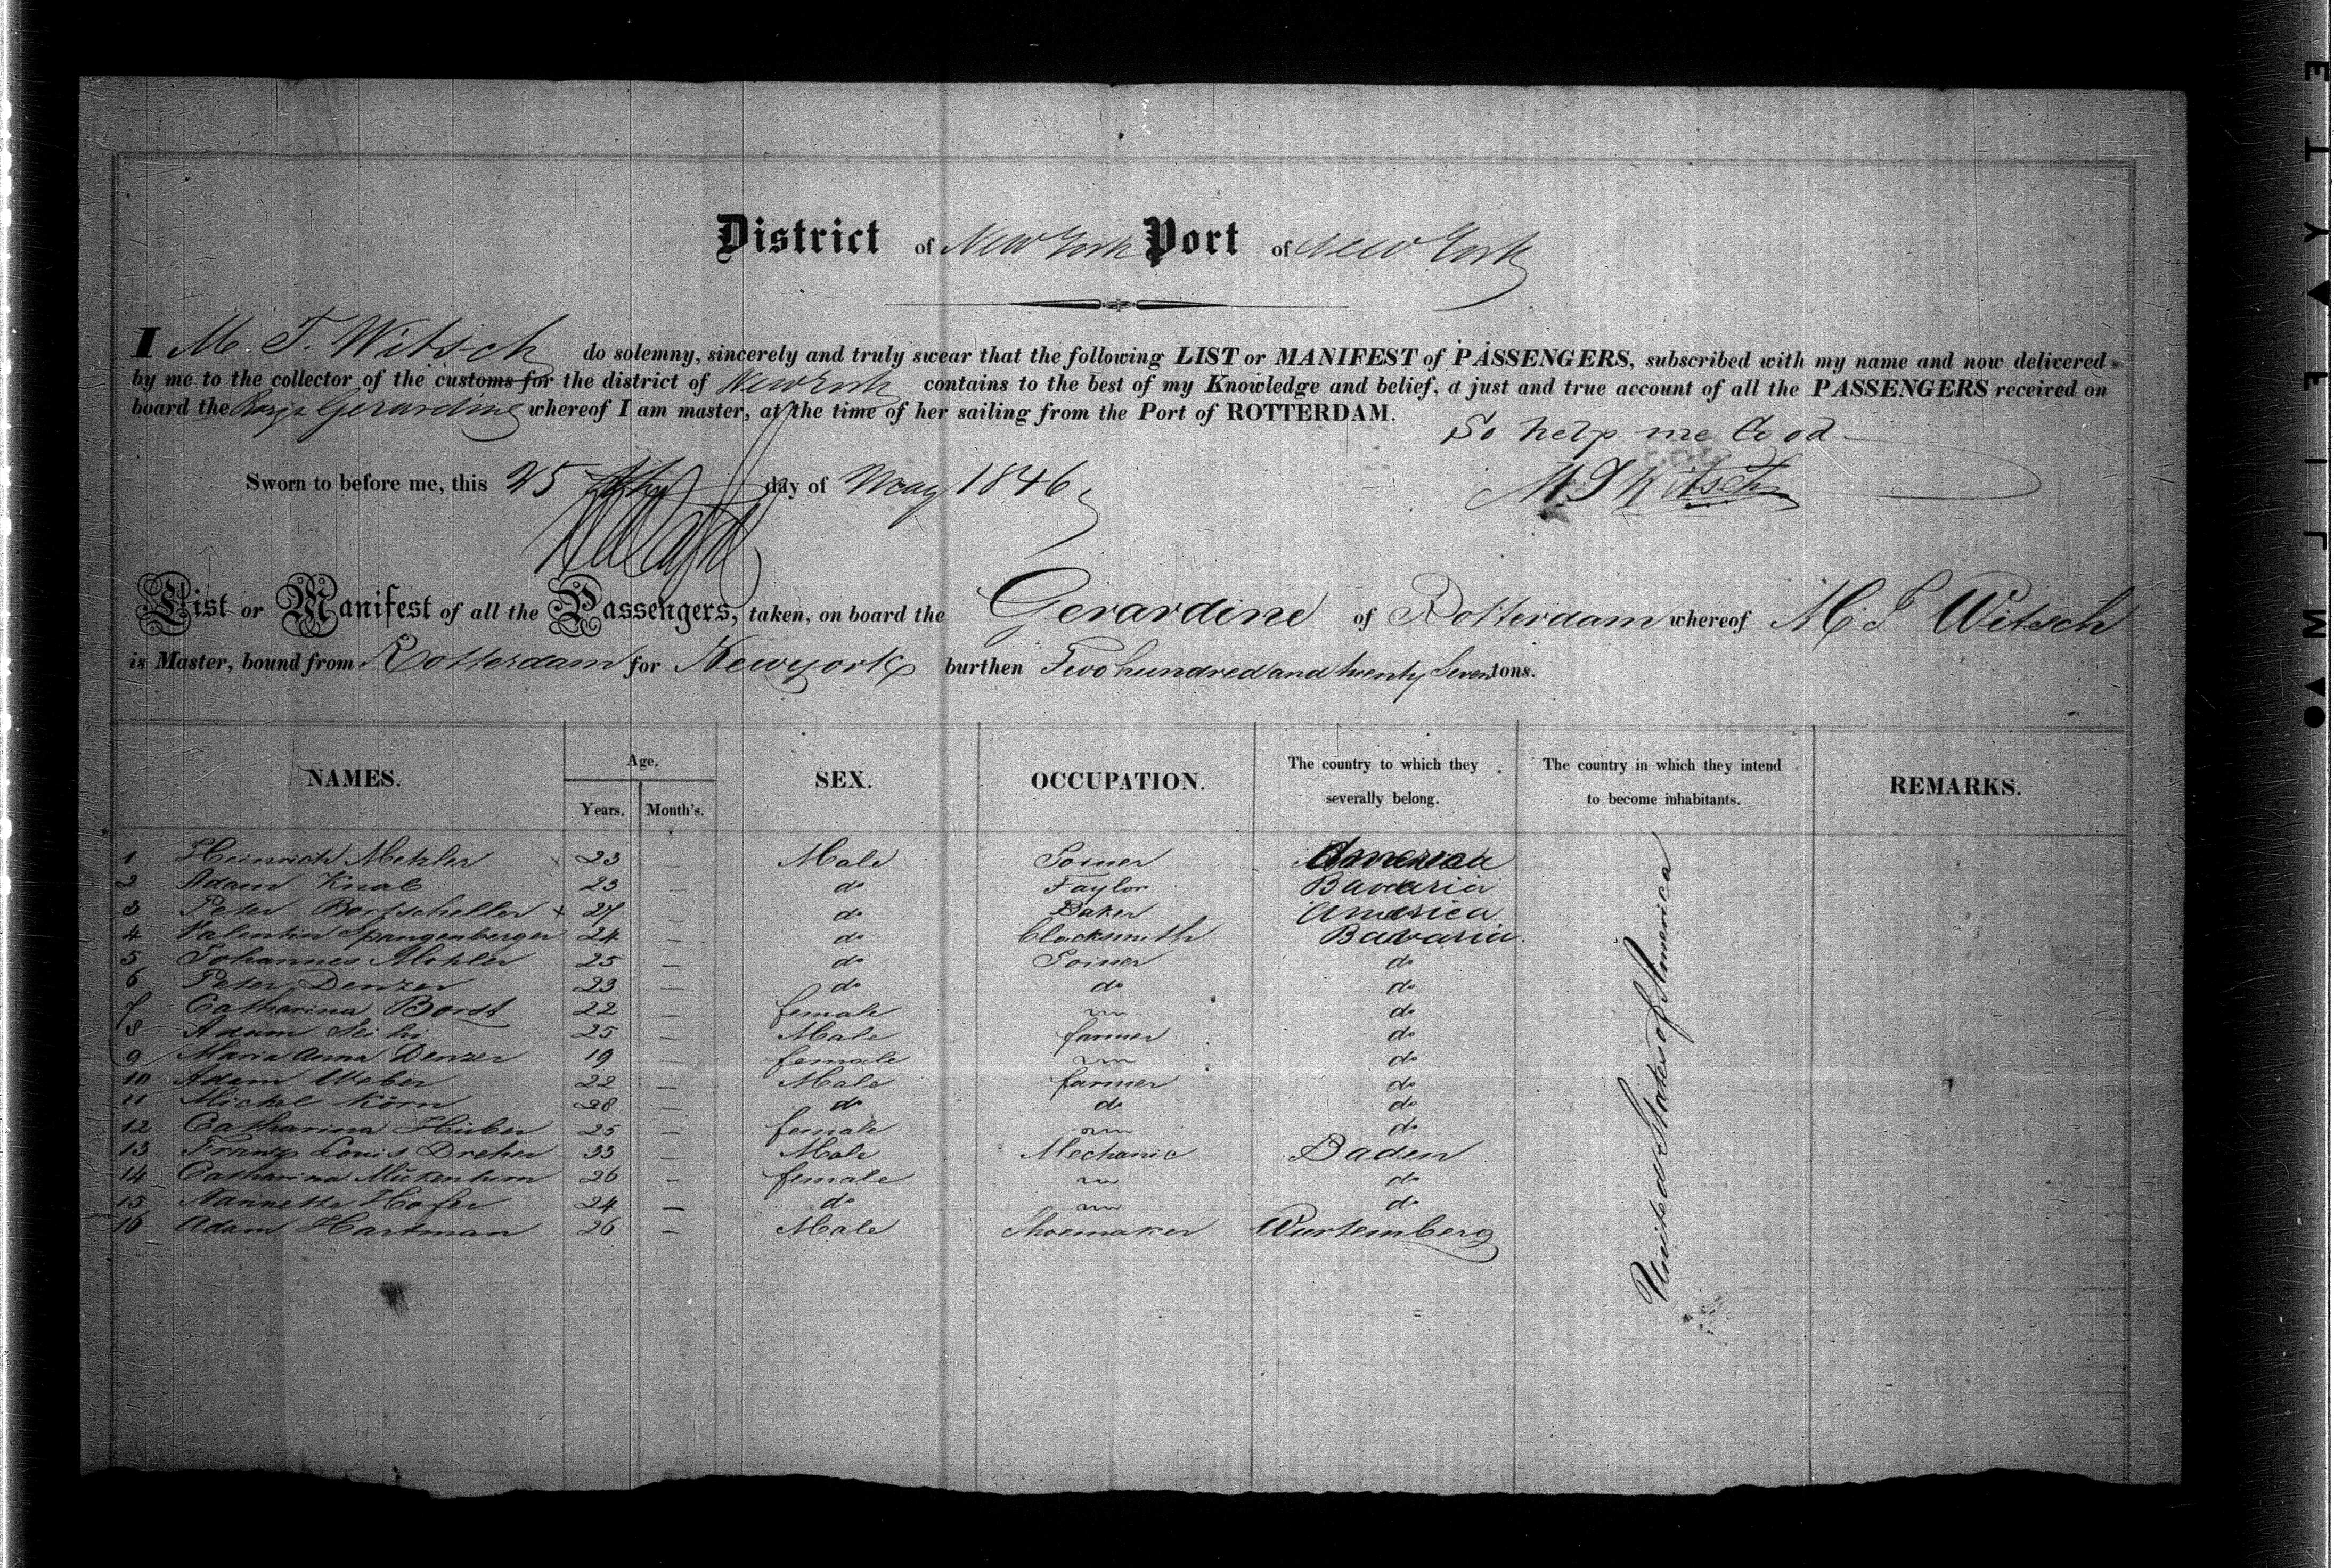 District of New York Port of New York
I M. T. Witsch do solemny, sincerely and truly swear that the following LIST or MANIFEST of PASSENGERS, subscribed with my name and now delivered
by me to the collector of the customs for the district of New York contains to the best of my Knowledge and belief, a just and true account of all the PASSENGERS received on
board the Gerardine whereof I am master, at the time of her sailing from the Port of ROTTERDAM.
So help me God
Sworn to before me, this 25 day of May 1846
M T Witsch
List or Manifest of all the Passengers, taken, on board the Gerardine of Rotterdam whereof M. T Witsch
is Master, bound from Rotterdam for Newyork burthen Two hundred and twenty Seven tons.
NAMES. Age. Years. Month's. SEX. OCCUPATION. The country to which they severally belong. The country in which they intend to become inhabitants. REMARKS.
1 Heinrich Metzler x 23 — Male Joiner America
2 Adam Knab 23 — do Taylor Bavaria
3 Peter Bortscheller x 27 — do Baker America
4 Valentin Spangenberger 24 — do Clacksmith Bavaria
5 Johannes Mohler 25 — do Joiner do
6 Peter Denzer 23 — do do do
7 Catharina Borst 22 — female do
8 Adam 25 — Male farmer do
9 Maria Anna Denzer 19 — female do
10 Adam Weber 22 — Male farmer do
11 Michel Körn 28 — do do do
12 Catharina Huber 25 — female do
13 Franz Louis Dreher 33 — Male Mechanic Baden
14 Catharina Mückenhirn 26 — female do
15 Nannette Hofer 24 — do do
16 Adam Hartman 26 — Male Shoemaker Wurtemberg
United States of America